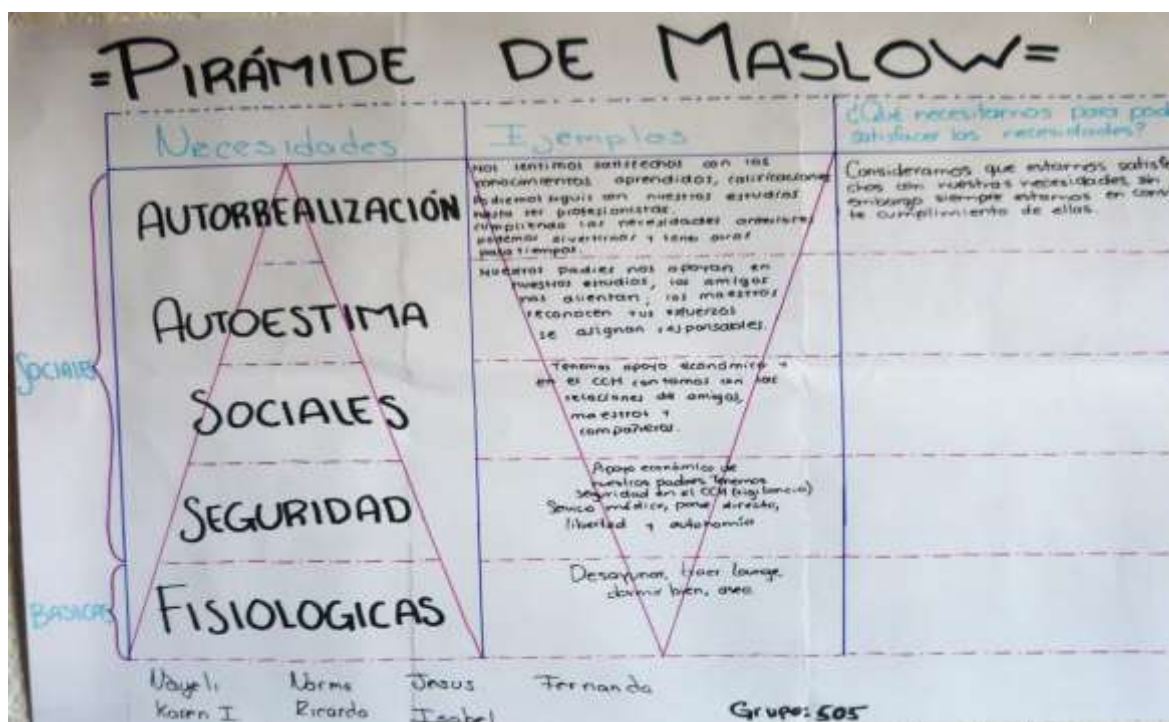 =PIRÁMIDE DE MASLOW=
Necesidades
Ejemplos
¿Qué necesitamos para pod
satisfacer las necesidades?
SOCIALES
AUTORREALIZACIÓN
Nos sentimos satisfechos con los
conocimientos aprendidos, calificaciones
Podemos seguir con nuestros estudios
hasta ser profesionistas,
cumpliendo las necesidades anteriores
podemos divertirnos y tener otros
pasatiempos.
Consideramos que estamos satisfe
chos con nuestras necesidades sin
embargo siempre estamos en cons
te cumplimiento de ellas.
AUTOESTIMA
Nuestros padres nos apoyan en
nuestros estudios, los amigos
nos alientan, los maestros
reconocen tus esfuerzos
se asignan responsables.
SOCIALES
Tenemos apoyo económico y
en el CCH contamos con las
relaciones de amigos,
maestros y
compañeros.
SEGURIDAD
Apoyo económico de
nuestros padres Tenemos
seguridad en el CCH (vigilancia)
médico, pase directo,
libertad y autonomía
BASICAS
FISIOLOGICAS
Desayunar, traer
dormir bien, aseo.
Nayeli Norma Jesus Fernando
Karen I Ricardo Isabel
Grupo: 505